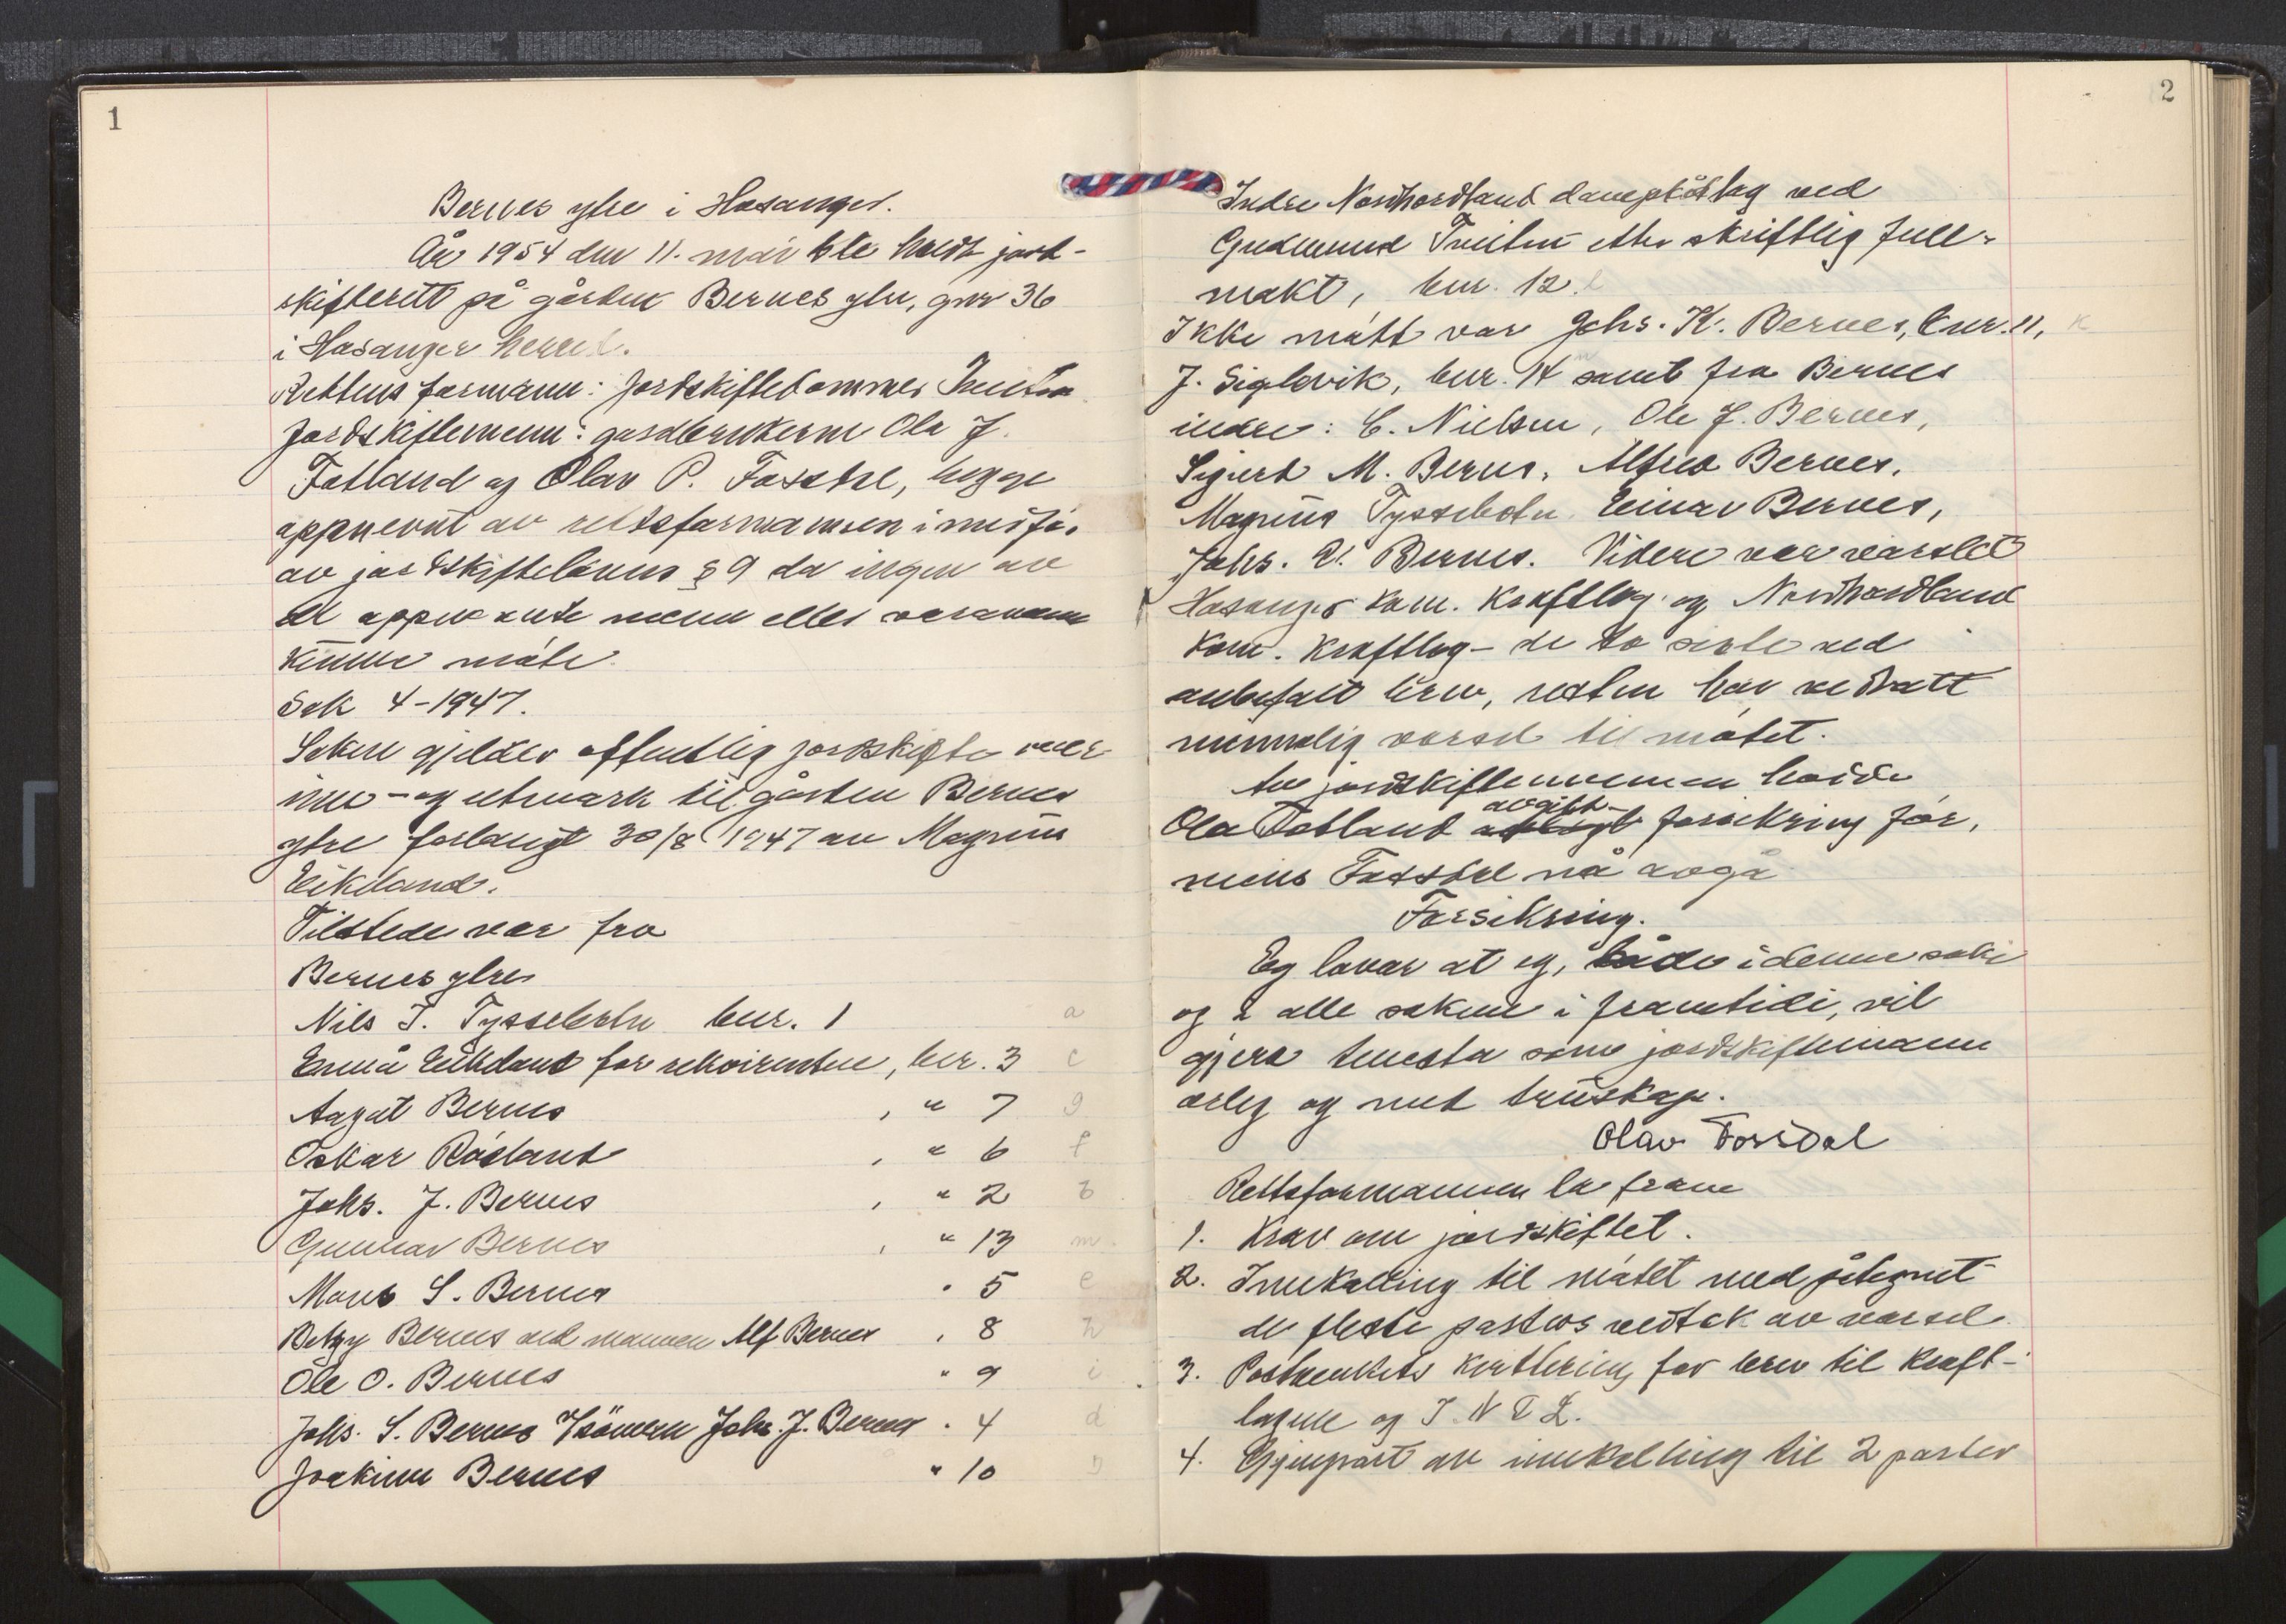 1
Bernes ytre i Hosanger.
År 1954 den 11. mai ble holdt jord-
skifterett på gården Bernes ytre, gnr 36
i Hosanger herred.
Rettens formann: Jordskiftedommer
Jordskiftemenn: gardbrukerne Ola J.
Fotland og Olav P. Fosdal, begge
oppnevnt av rettsformannen i medför
av jordskiftelovens § 9 da ingen av
de oppnevnte menn eller varamenn
kunne möte.
Sak 4-1947.
Saken gjelder offentlig jordskifte over
inn- og utmark til gården Bernes
ytre forlangt 30/8 1947 av Magnus
Eikeland.
Tilstede var fra
Bernes ytre
Nils J. Tyssebotn bnr. 1 a
Emma Eikeland for rekvirenten, bnr. 3 c
Aagot Bernes , " 7 g
Oskar Rösland , " 6 f
Johs. J. Bernes , " 2 b
Gunnar Bernes , " 13 m
Mons S. Bernes " 5 e
Betzy Bernes ved mannen Alf Bernes , 8 h
Ole O. Bernes " 9 i
Johs. S. Bernes v/sönnen Johs. J. Bernes " 4 d
Joakim Bernes " 10
2
Indre Nordhordland dampbåtlag ved
Gudmund Tveiten etter skriftlig full-
makt, bnr. 12. l
Ikke mött var Johs. K. Bernes, bnr. 11, k
J. Siglevik, bnr. 14 samt fra Bernes
indre: C. Nielsen, Ole J. Bernes,
Sigurd M. Bernes, Alfred Bernes,
Magnus Tyssebotn, Einar Bernes,
Johs. O. Bernes. Videre var varslet
Hosanger kom. kraftlag og Nordhordland
kom. kraftlag - de to siste ved
anbefalt brev, resten har vedtatt
munnlig varsel til mötet.
Av jordskiftemennene hadde
Ola Fotland avgitt forsikring för,
mens Fosdal nå avga
Forsikring.
Eg lovar at eg, både i denne saki
og i alle sakene i framtidi, vil
gjera tenesta som jordskiftemann
ærleg og med truskap.
Olav Fosdal
Rettsformannen la fram
1. Krav om jordskiftet.
2. Innkalling til mötet med påtegnet
de fleste parters vedtak av varsel.
3. Postverkets kvittering for brev til kraft-
lagene og I.N.D.L.
4. Gjenpart av innkalling til 2 parter